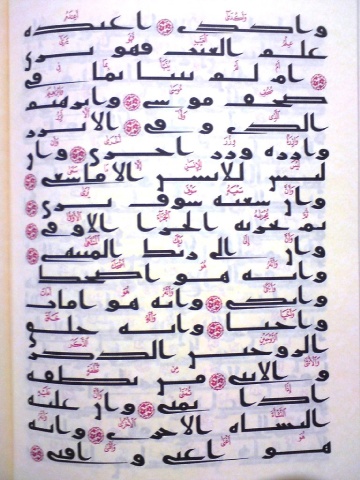 وأكدى ۝ أعنده
علم الغيب فهو يرى
۝ أم لم ينبأ بما في
صحف موسى ۝ وإبرهيم
الذي وفى ۝ ألا تزر
وازرة وزر أخرى ۝ وأن
ليس للإنسن إلا ما سعى ۝
وأن سعيه سوف يرى ۝
ثم يجزىه الجزاء الأوفى ۝
وأن إلى ربك المنتهى ۝
وأنه هو أضحك
وأبكى ۝ وأنه هو أمات
وأحيا ۝ وأنه خلق
الزوجين الذكر
والأنثى ۝ من نطفة
إذا تمنى ۝ وأن عليه
النشأة الأخرى ۝ وأنه
هو أغنى وأقنى ۝